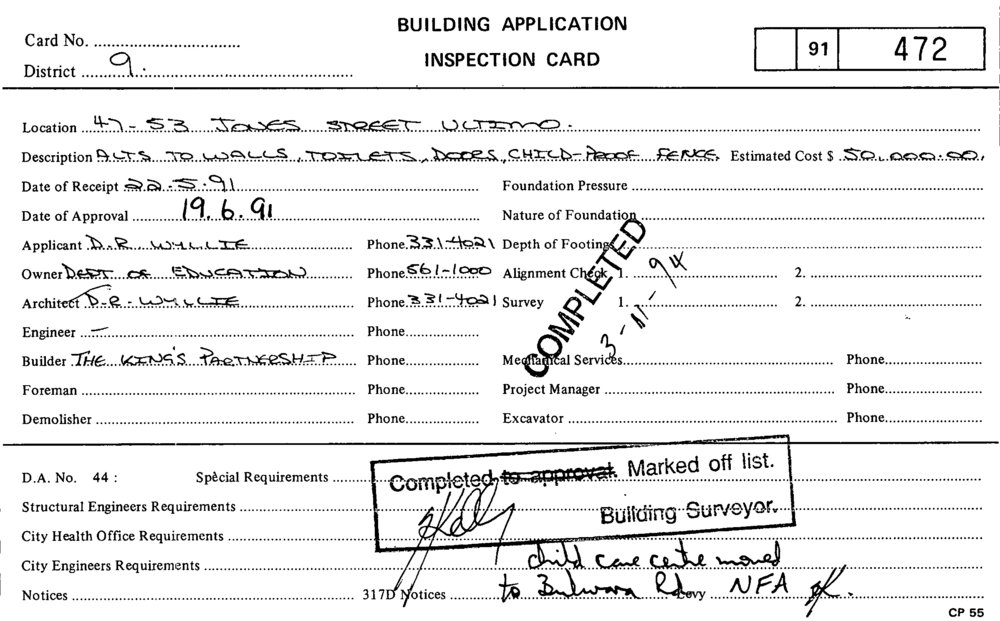 BUILDING APPLICATION
INSPECTION CARD
Card No.
District 9.
91 472
Location 47-53 JONES STREET ULTIMO.
Description ALTS TO WALLS, TOILETS, DOORS, CHILD-PROOF FENCE. Estimated Cost $ 50,000.00.
Date of Receipt 22.5.91 Foundation Pressure
Date of Approval 19.6.91 Nature of Foundation
Applicant D.R. WYLLIE Phone 331-4021 Depth of Footings
Owner DEPT OF EDUCATION Phone 561-1000 Alignment Check 1. 2.
Architect D.R. WYLLIE Phone 331-4021 Survey 1. 2.
COMPLETED
3-11-94
Engineer - Phone
Builder THE KING'S PARTNERSHIP Phone Mechanical Services Phone
Foreman Phone Project Manager Phone
Demolisher Phone Excavator Phone
D.A. No. 44 : Special Requirements
Completed to approval. Marked off list.
Structural Engineers Requirements
Building Surveyor.
City Health Office Requirements
child care centre moved
City Engineers Requirements
Notices 317D Notices to Bulwara Rd Levy NFA
CP 55